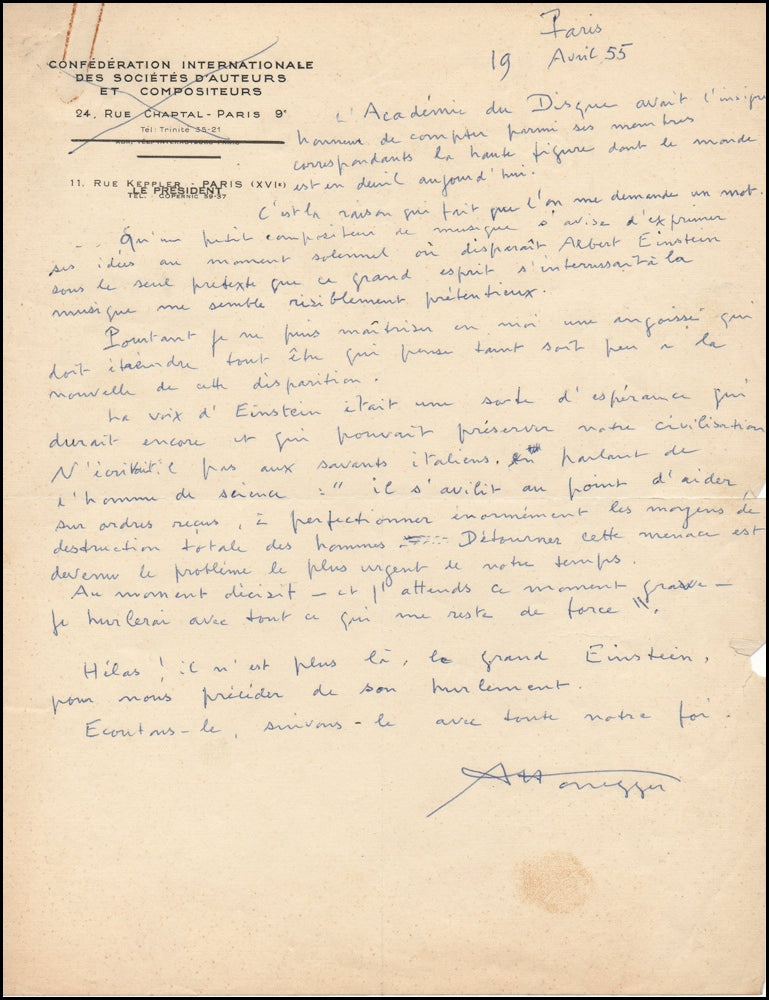 Paris
19 Avril 55
CONFÉDÉRATION INTERNATIONALE
DES SOCIÉTÉS D'AUTEURS
ET COMPOSITEURS
24, RUE CHAPTAL - PARIS 9e
Tél: Trinité 35-21
11. RUE KEPPLER - PARIS (XVIe)
LE PRÉSIDENT
TÉL. : COPERNIC 59-37
L'Académie du Disque avait l'insigne
honneur de compter parmi ses membres
correspondants la haute figure dont le monde
est en deuil aujourd'hui.
C'est la raison qui fait que l'on me demande un mot.
Qu'un petit compositeur de musique s'avise d'exprimer
ses idées au moment solennel où disparaît Albert Einstein
sous le seul prétexte que ce grand esprit s'intéressait à la
musique me semble risiblement prétentieux.
Pourtant je ne puis maîtriser en moi une angoisse qui
doit étreindre tout être qui pense tant soit peu à la
nouvelle de cette disparition.
La voix d'Einstein était une sorte d'espérance qui
durait encore et qui pouvait préserver notre civilisation
N'écrivait-il pas aux savants italiens, en parlant de
l'homme de science : " il s'avilit au point d'aider,
sur ordres reçus, à perfectionner énormément les moyens de
destruction totale des hommes. Détourner cette menace est
devenu le problème le plus urgent de notre temps.
Au moment décisif – et j'attends ce moment grave –
je hurlerai avec tout ce qui me reste de force ".
Hélas ! il n'est plus là, le grand Einstein,
pour nous précéder de son hurlement.
Ecoutons-le, suivons-le avec toute notre foi.
AHonegger